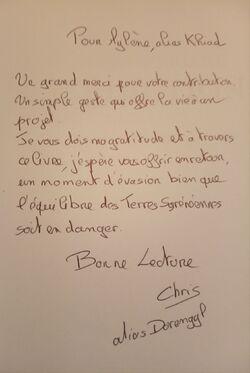 Pour Aylène, alias Khiad
Un grand merci pour votre contribution.
Un simple geste qui offre la vie à un
projet.
Je vous dois ma gratitude et à travers
ce livre, j'espère vous offrir en retour,
un moment d'évasion bien que
l'équilibre des Terres Syréniennes
soit en danger.
Bonne Lecture
Chris
alias Dorenggl